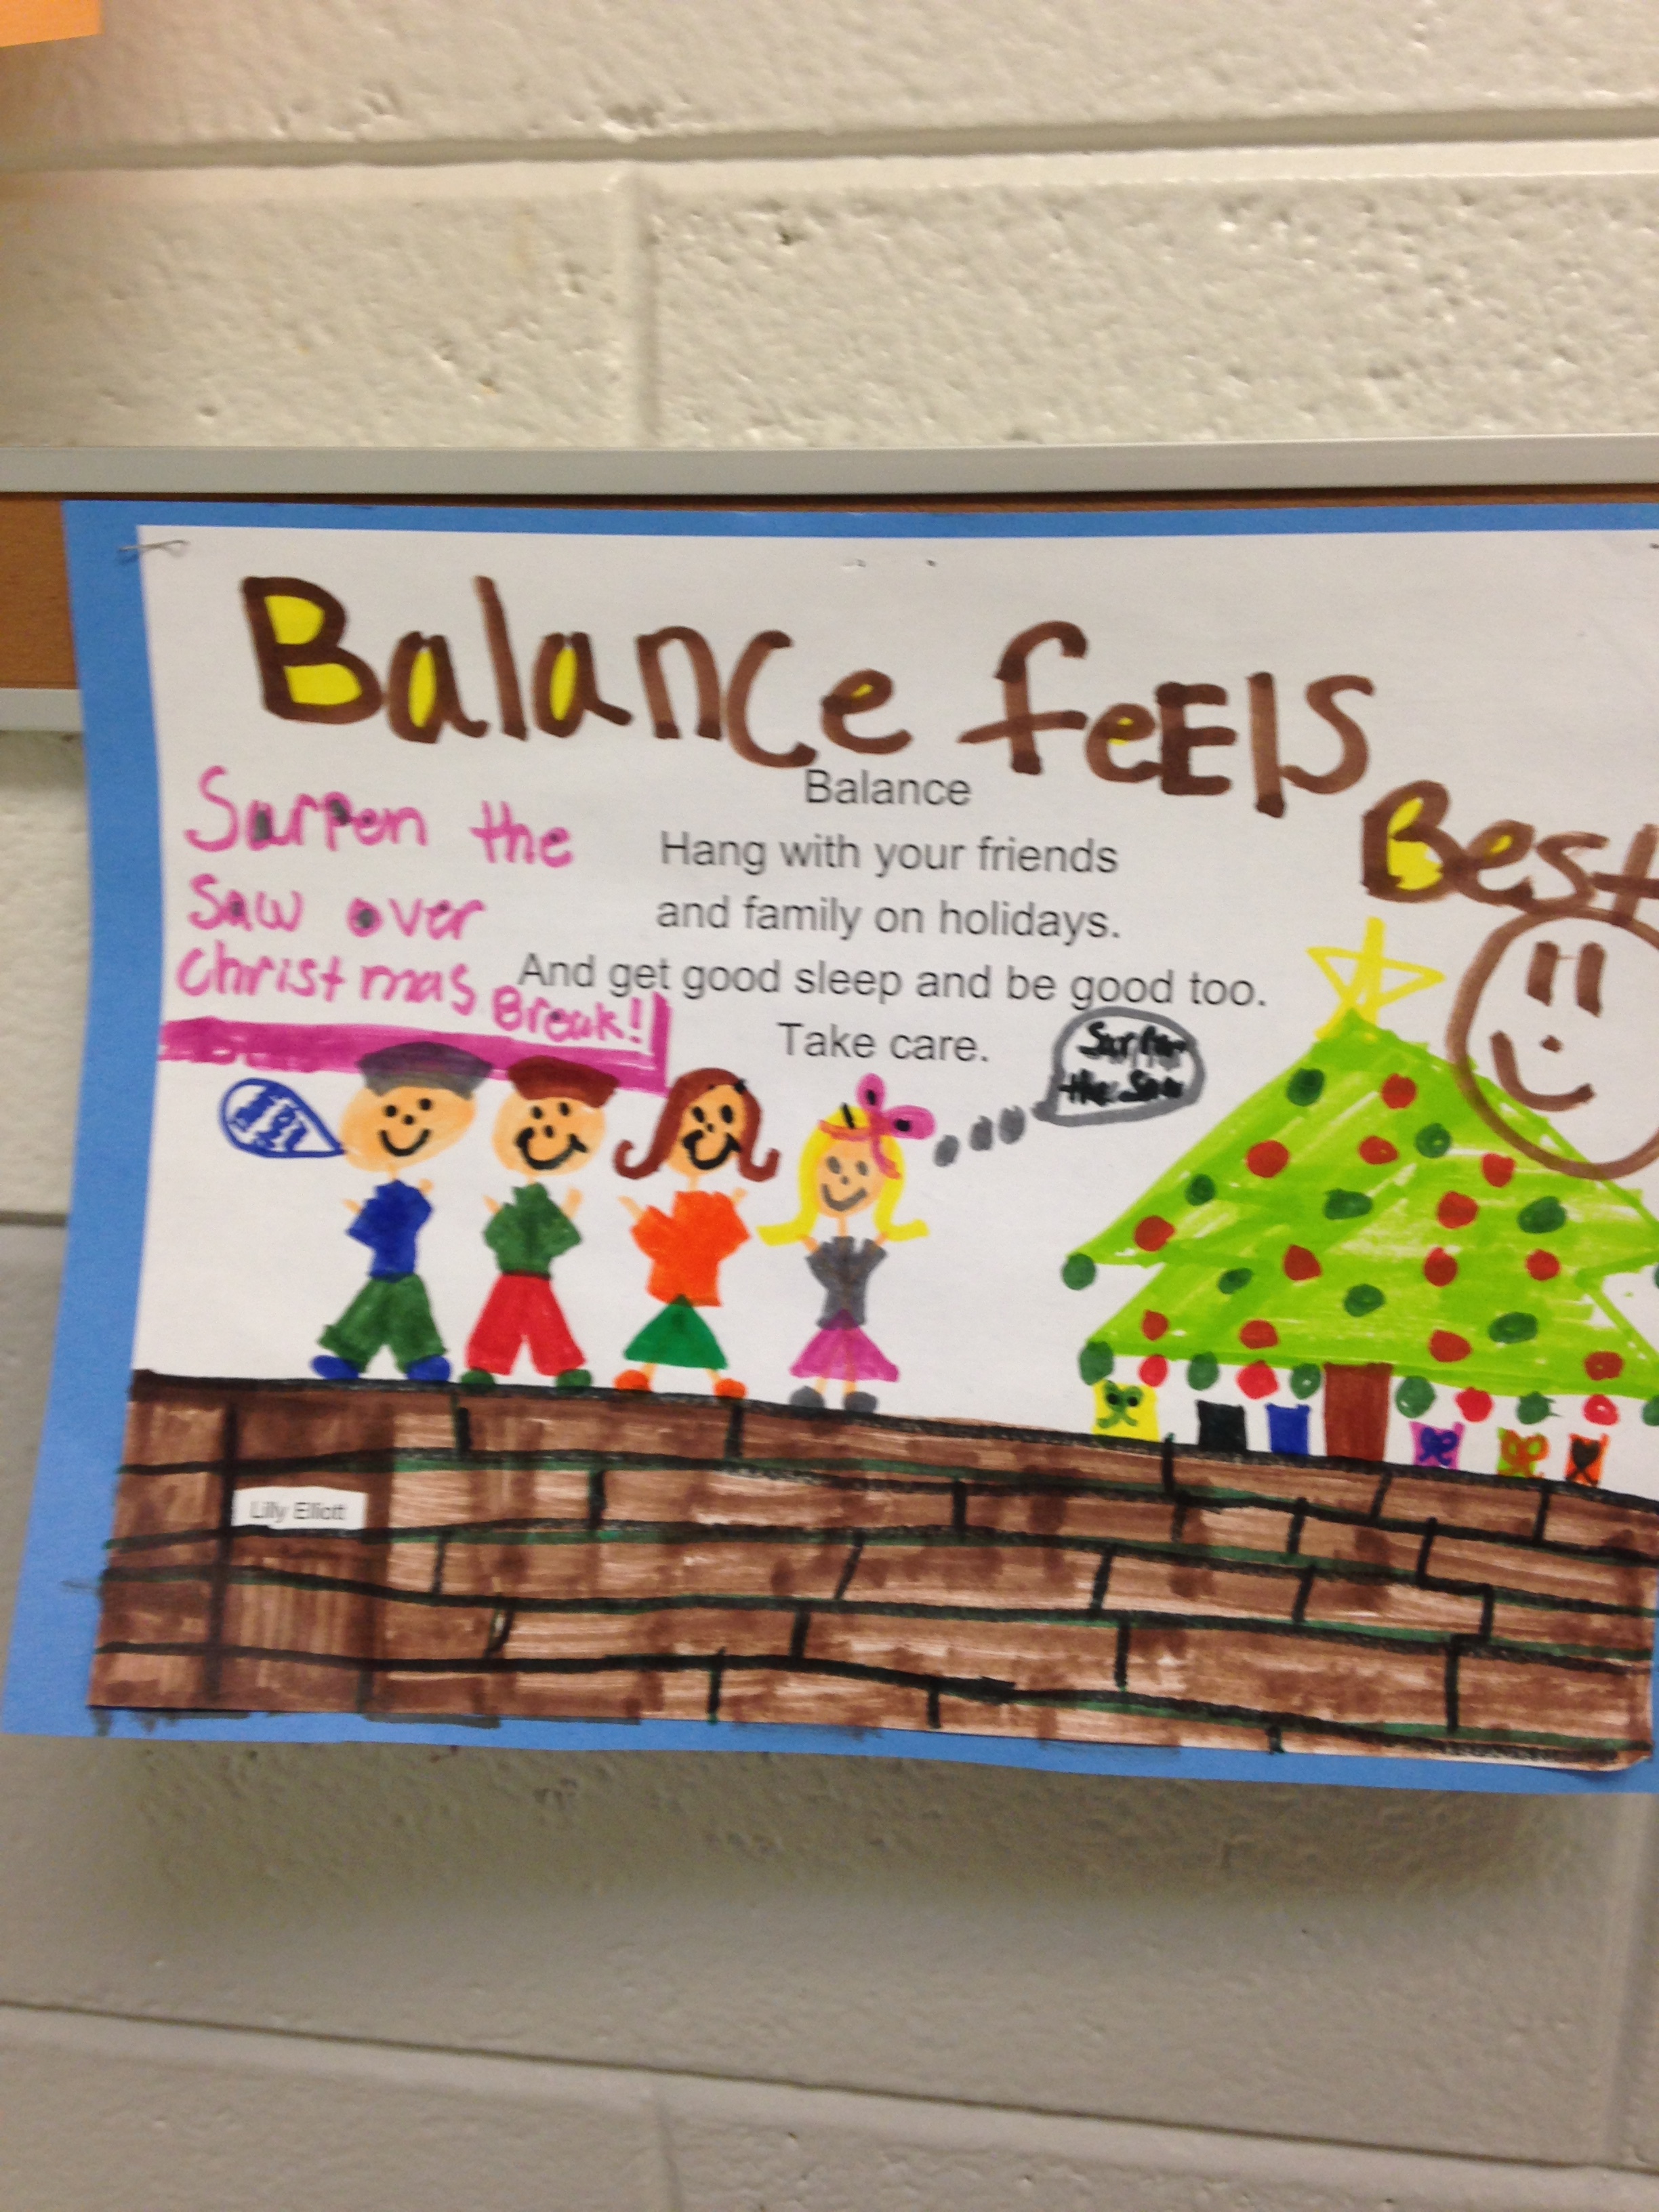 Balance feEls
Best
Sarpen the
Saw over
Christmas Break!
Balance
Hang with your friends
and family on holidays.
And get good sleep and be good too.
Take care.
the Saw
Lilly Elliott